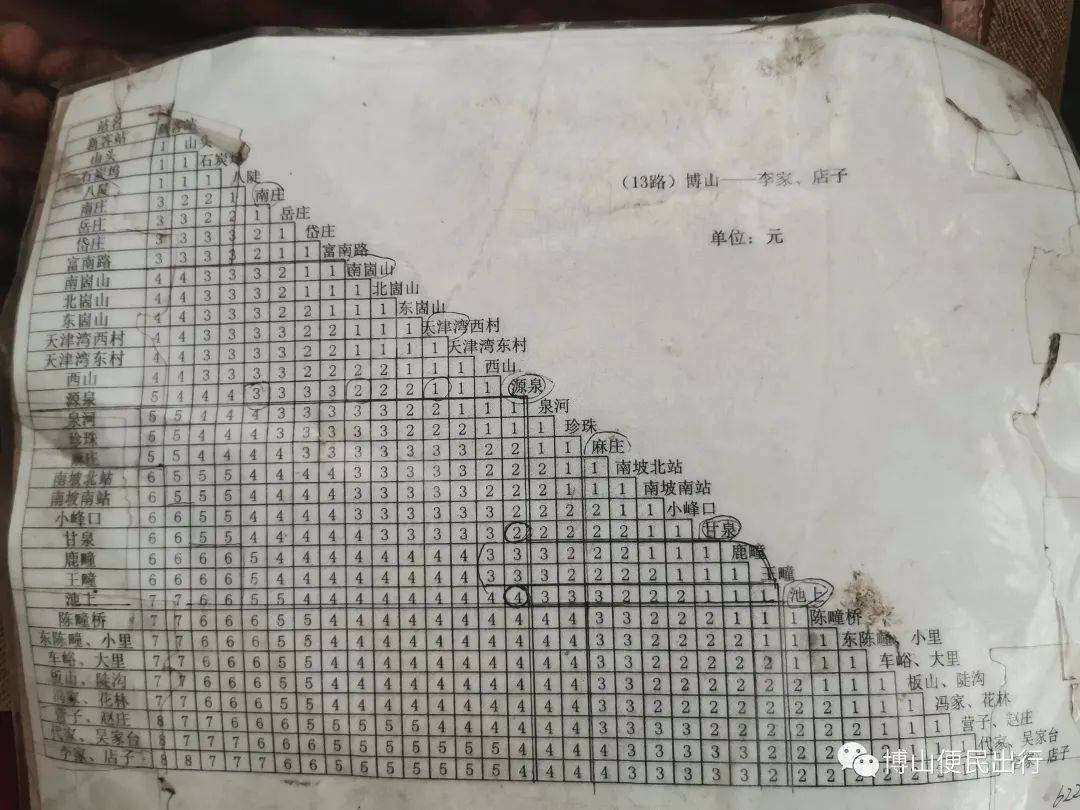 (13路)博山——李家、店子
单位：元
站名 新客站
新客站 1 山头
山头 1 1 石炭坞
石炭坞 1 1 1 八陡
八陡 3 2 2 1 南庄
南庄 3 3 2 2 1 岳庄
岳庄 3 3 3 3 2 1 岱庄
岱庄 3 3 3 3 2 1 1 富南路
富南路 4 4 3 3 3 2 1 1 南崮山
南崮山 4 4 3 3 3 2 1 1 1 北崮山
北崮山 4 4 3 3 3 2 2 1 1 1 东崮山
东崮山 4 4 3 3 3 3 2 2 1 1 1 天津湾西村
天津湾西村 4 4 3 3 3 3 2 2 1 1 1 1 天津湾东村
天津湾东村 4 4 3 3 3 3 2 2 2 2 1 1 1 西山
西山
源泉 5 4 4 4 3 3 3 3 2 2 2 1 1 1 源泉
泉河 6 5 4 4 4 3 3 3 3 3 2 2 1 1 1 泉河
珍珠 6 5 4 4 4 3 3 3 3 3 2 2 2 1 1 1 珍珠
麻庄 5 5 4 4 4 4 3 3 3 3 3 3 2 2 2 1 1 麻庄
南坡北站 6 5 5 5 4 4 4 4 3 3 3 3 3 2 2 2 1 1 南坡北站
南坡南站 6 5 5 5 4 4 4 4 3 3 3 3 3 2 2 2 1 1 1 南坡南站
小峰口 6 6 5 5 4 4 4 4 3 3 3 3 3 2 2 2 2 2 1 1 小峰口
甘泉 6 6 5 5 4 4 4 4 4 3 3 3 3 3 2 2 2 2 2 1 1 甘泉
鹿疃 6 6 6 6 5 4 4 4 4 4 4 4 4 3 3 3 2 2 2 1 1 1 鹿疃
王疃 6 6 6 6 5 4 4 4 4 4 4 4 4 3 3 3 2 2 2 2 1 1 1 王疃
池上 7 7 6 6 5 5 4 4 4 4 4 4 4 4 4 3 3 3 3 2 2 1 1 1 池上
陈疃桥 7 7 6 6 6 5 5 4 4 4 4 4 4 4 4 4 4 3 3 2 2 2 1 1 1 陈疃桥
东陈疃、小里 7 7 6 6 6 5 5 4 4 4 4 4 4 4 4 4 4 3 3 2 2 2 2 1 1 1 东陈疃、小里
车峪、大里 7 7 6 6 6 5 5 4 4 4 4 4 4 4 4 4 4 3 3 2 2 2 2 2 1 1 1 车峪、大里
板山、陡沟 7 7 6 6 6 5 5 4 4 4 4 4 4 4 4 4 4 3 3 2 2 2 2 2 2 1 1 1 板山、陡沟
冯家、花林 7 7 6 6 6 5 5 4 4 4 4 4 4 4 4 4 4 3 3 2 2 2 2 2 2 2 1 1 1 冯家、花林
营子、赵庄 营子、赵庄
代家、吴家台 代家、吴家台
李家、店子 店子
博山便民出行
622